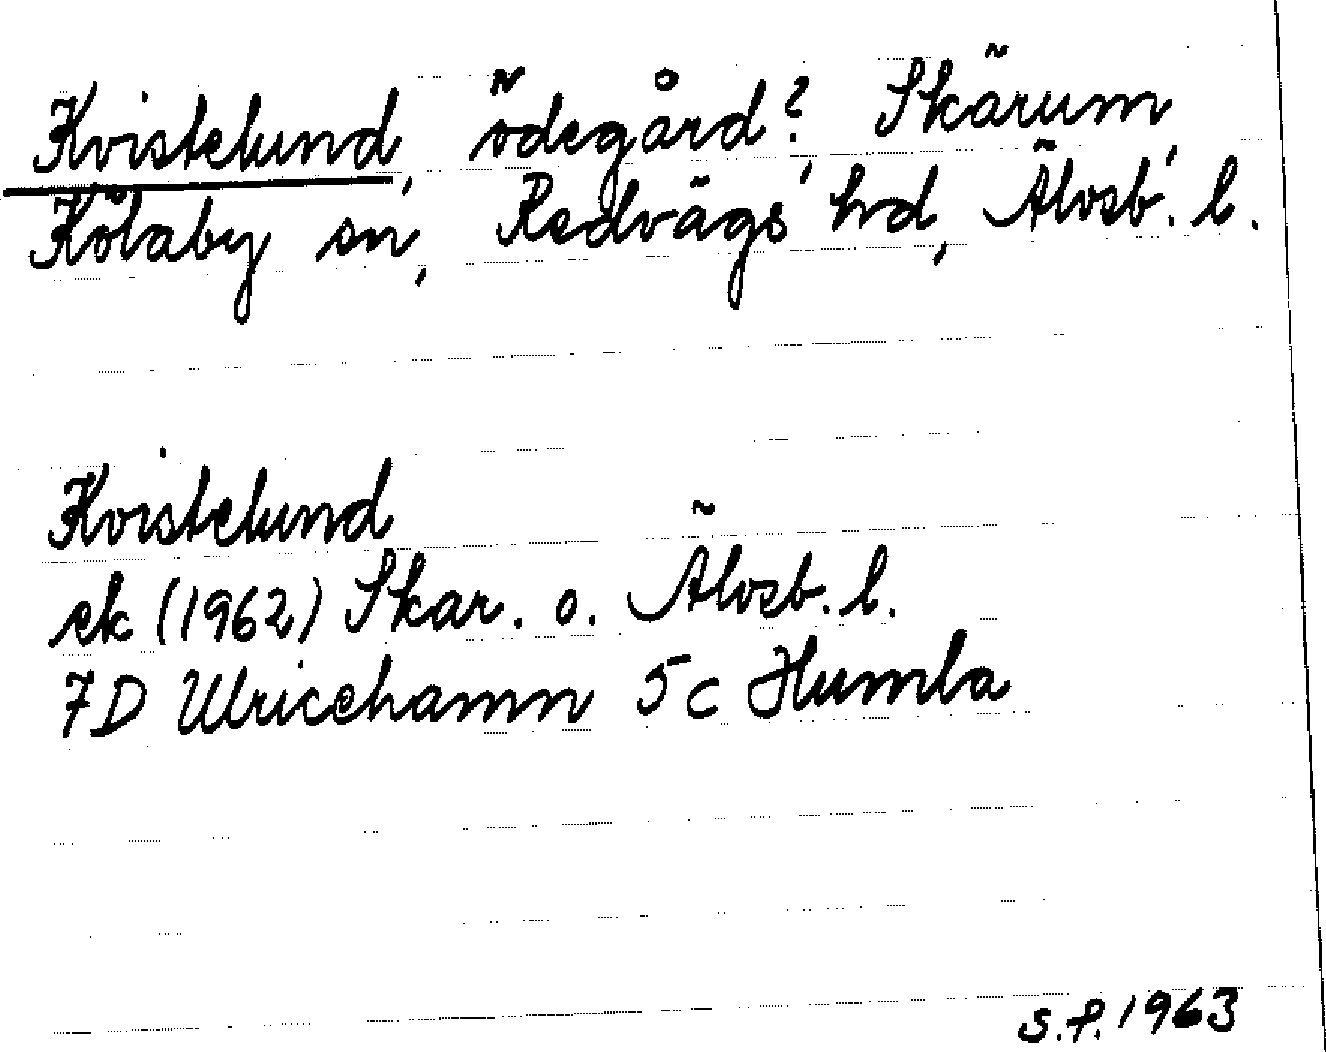 Kvistelund, ödegård?, Skärum,
Kölaby sn, Redvägs hd, Älvsb. l.
Kvistelund
ek (1962) Skar. o. Älvsb. l.
7D Ulricehamn 5c Humla
S.F. 1963